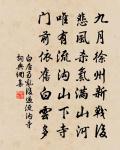 九月徐州新戰後
悲風殺氣滿山河
唯有流溝山下寺
門前依舊白雲多
白居易亂後過流溝寺
詞典網集